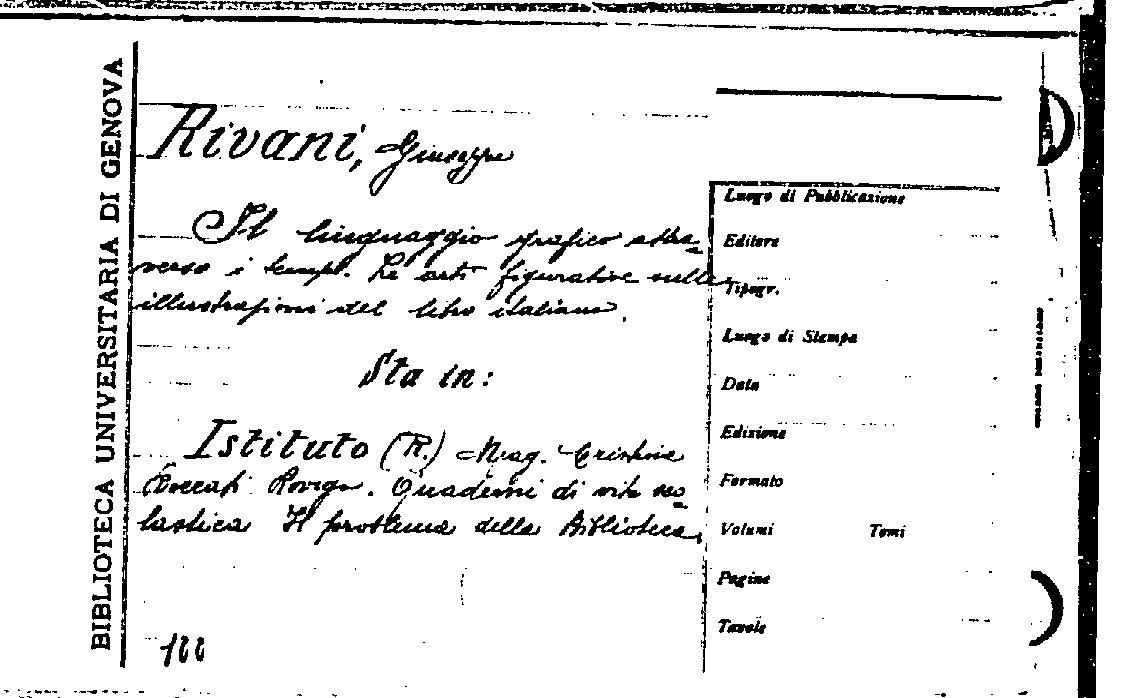 BIBLIOTECA UNIVERSITARIA DI GENOVA
Rivani, Giuseppe
Il linguaggio grafico attra=
verso i tempi. Le arti figurative nelle
illustrazioni del libro italiano.
Sta in:
Istituto (R.) Mag. Cristina
Roccati Rovigo. Quaderni di vita sco=
lastica Il problema della Biblioteca.
Luogo di Pubblicazione
Editore
Tipogr.
Luogo di Stampa
Data
Edizione
Formato
Volumi Tomi
Pagine
Tavole